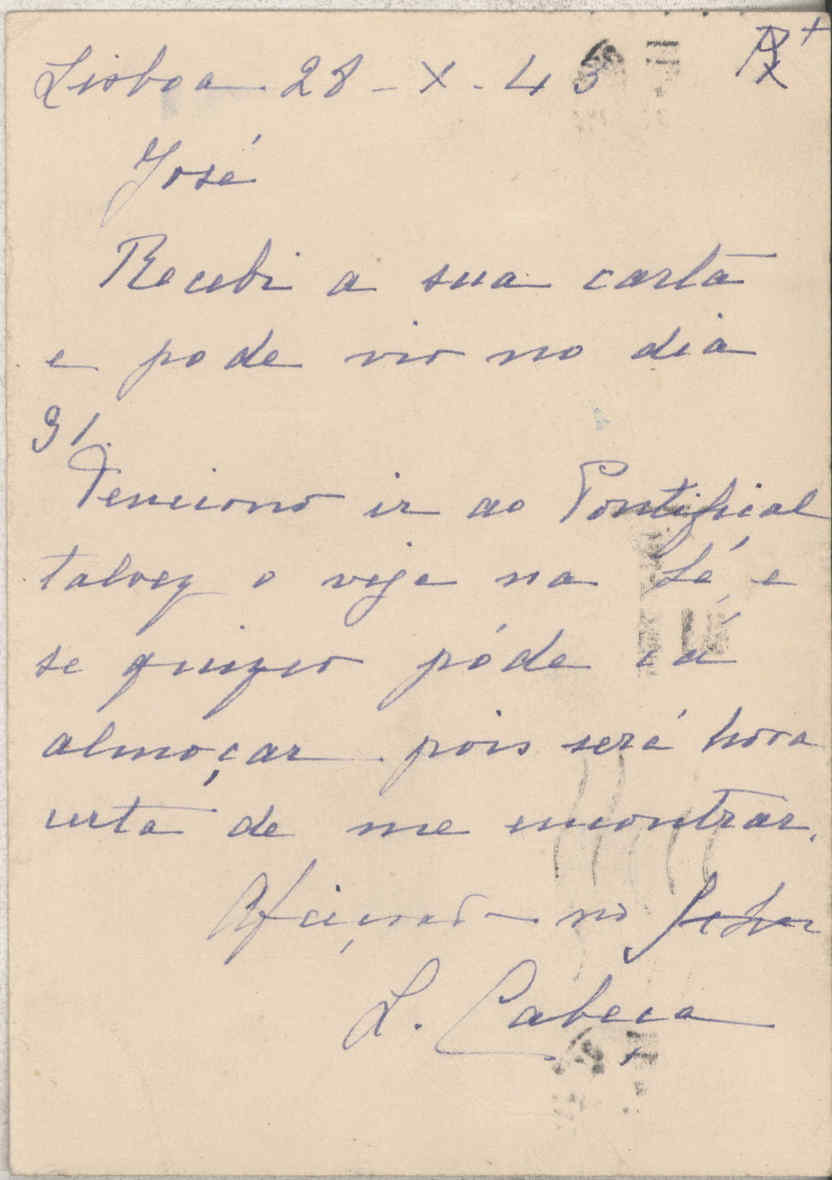 Lisboa 28-X-43
José
Recebi a sua carta
e pode vir no dia
31.
Tenciono ir ao Pontifical
talvez o veja na Sé, e
se quizer póde cá
almoçar pois será hora
certa de me encontrar.
no Senhor
L. Cabeça